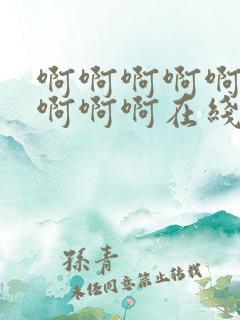 啊啊啊啊啊
啊啊啊在綫
孫青
未經同意禁止轉載